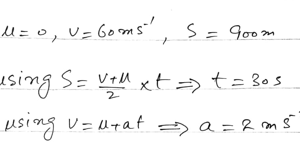 u = 0, v = 60 ms⁻¹, S = 900m
using S = (v+u)/2 × t ⇒ t = 30s
using v = u+at ⇒ a = 2 ms⁻